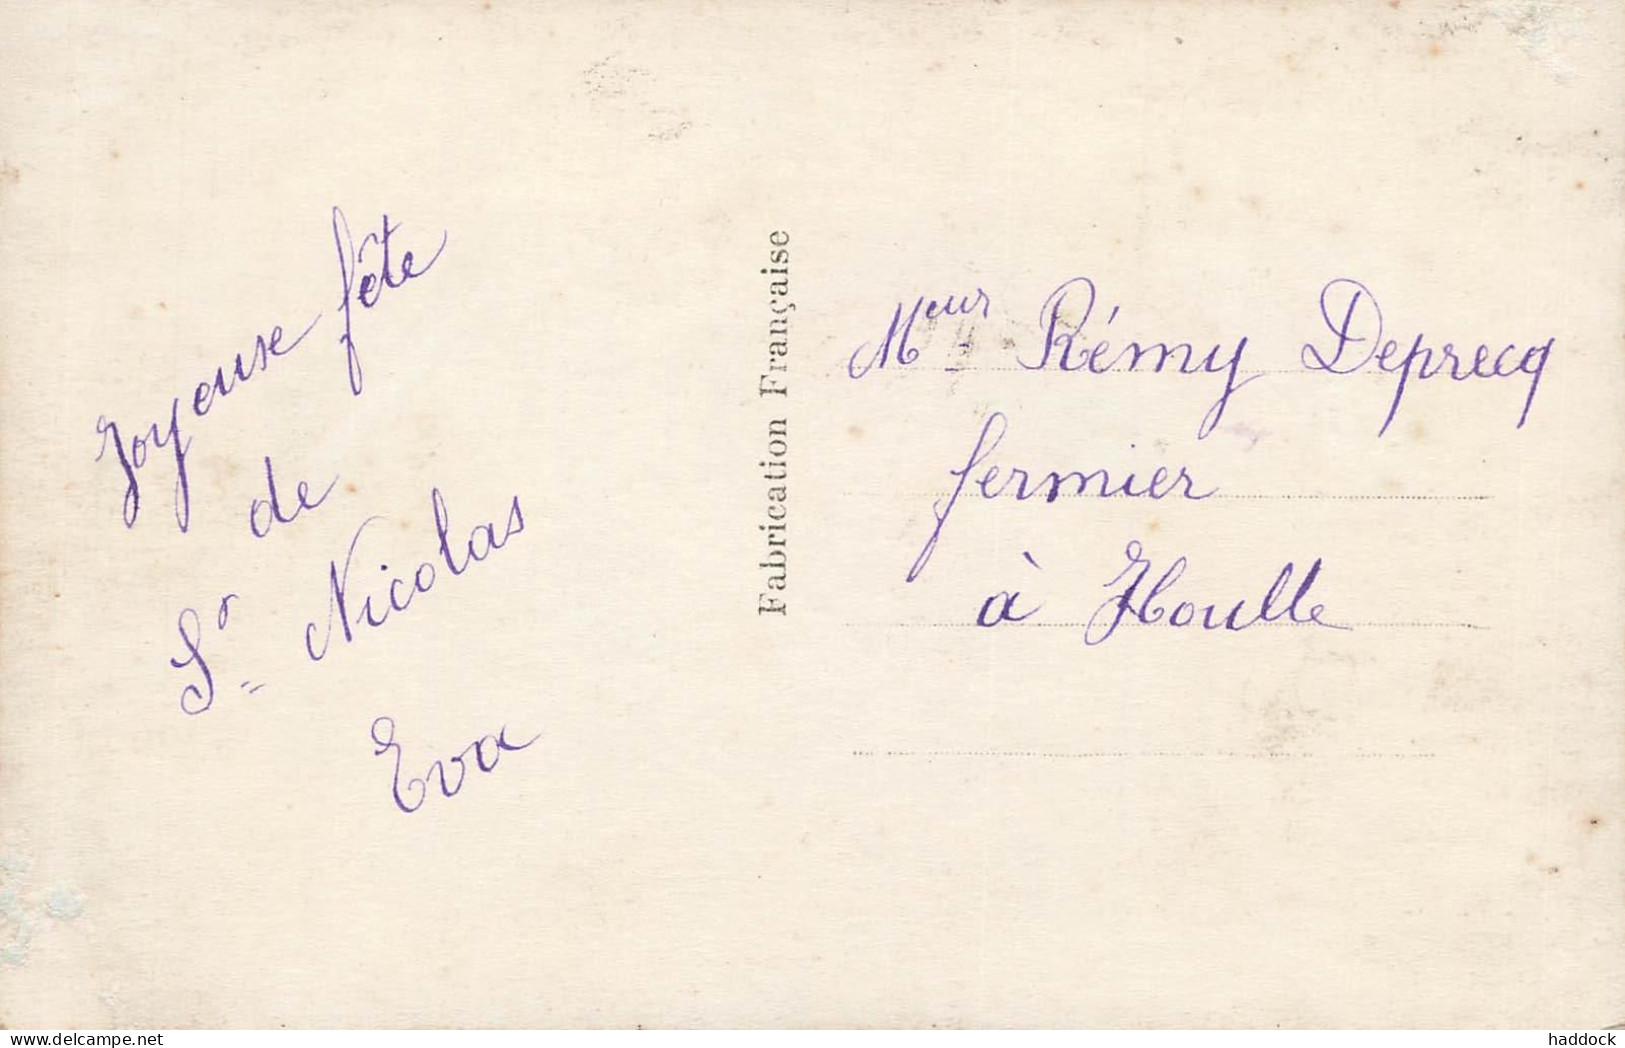 Joyeuse fête
de
St Nicolas
Eva
Fabrication Française
Meur Rémy Deprecq
fermier
à Houlle
delcampe.net
haddock